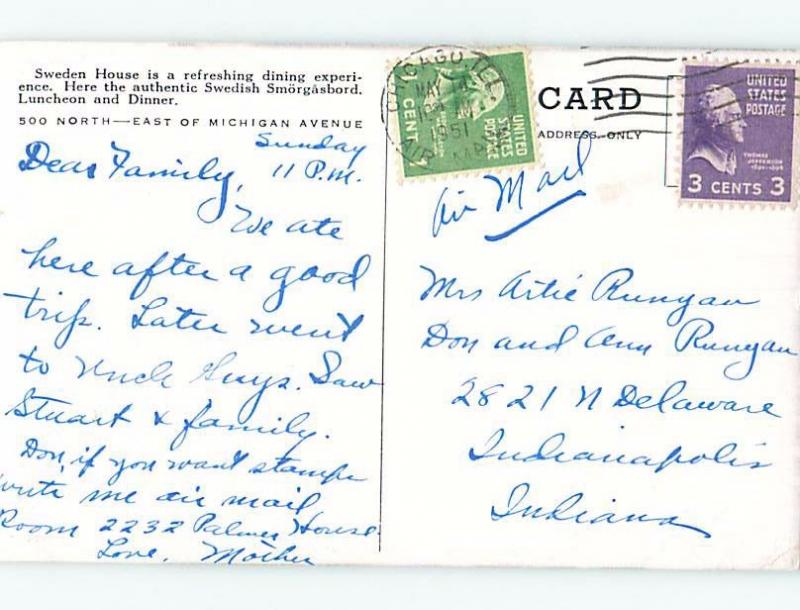 Sweden House is a refreshing dining experi-
ence. Here the authentic Swedish Smörgåsbord.
Luncheon and Dinner.
500 NORTH—EAST OF MICHIGAN AVENUE
Sunday
11 P.M.
Dear Family,
We ate
here after a good
trip. Later went
to Uncle Guys. Saw
Stuart & family.
Don, if you want stamps
write me air mail
Room 2232 Palmer House.
Love, Mother
CHICAGO, ILL
MAY 14
1951
UNITED
STATES
CENT
CARD
ADDRESS ONLY
UNITED
STATES
POSTAGE
THOMAS
JEFFERSON
3 CENTS 3
Air Mail
Mrs Artie Runyan
Don and Ann Runyan
2821 N Delaware
Indianapolis
Indiana